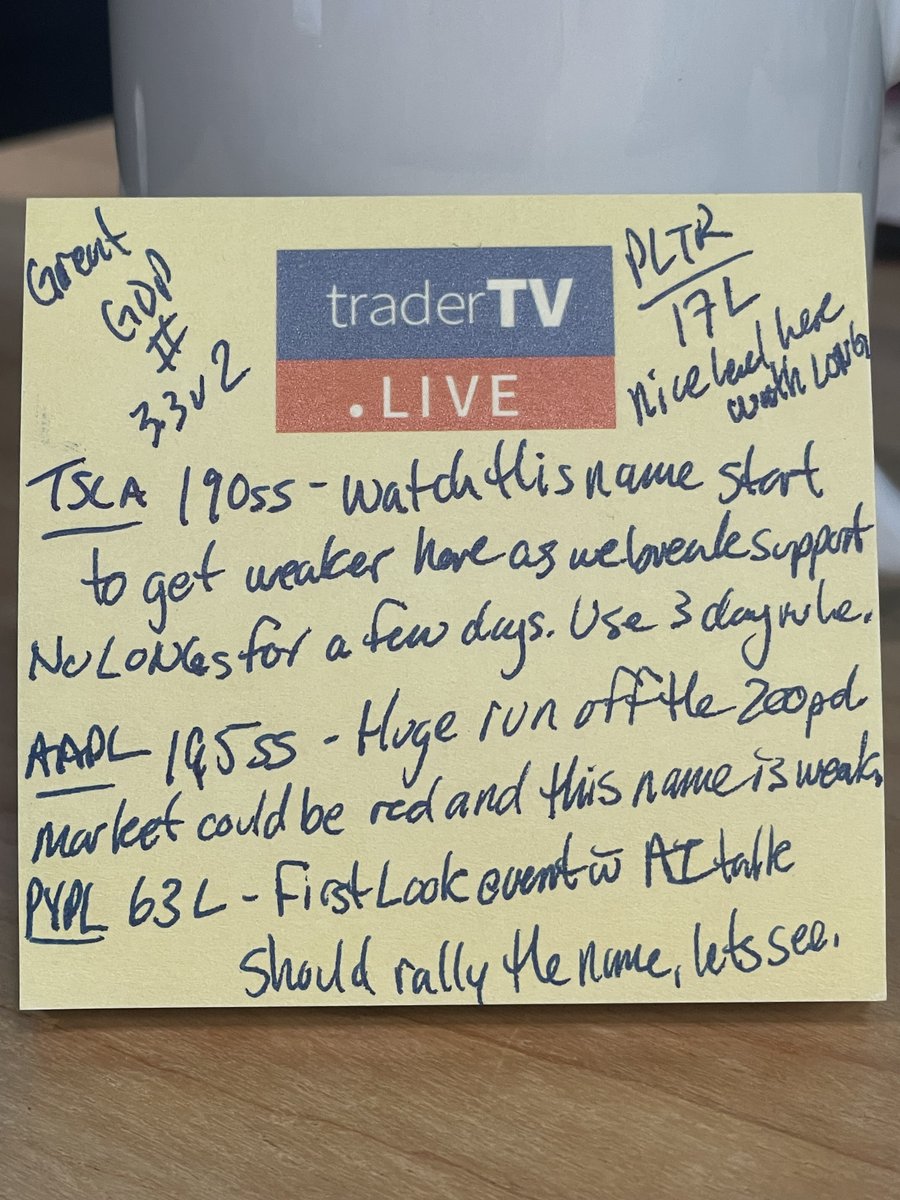 Great
GDP
#
3.3 v 2
traderTV
.LIVE
PLTR
17L
nice level here
worth LONG
TSLA 190ss - watch this name start
to get weaker here as we break support
No LONGs for a few days. Use 3 day rule.
AAPL 195ss - Huge run off the 200pd.
Market could be red and this name is weak.
PYPL 63L - First Look event w AI talk
should rally the name, lets see.